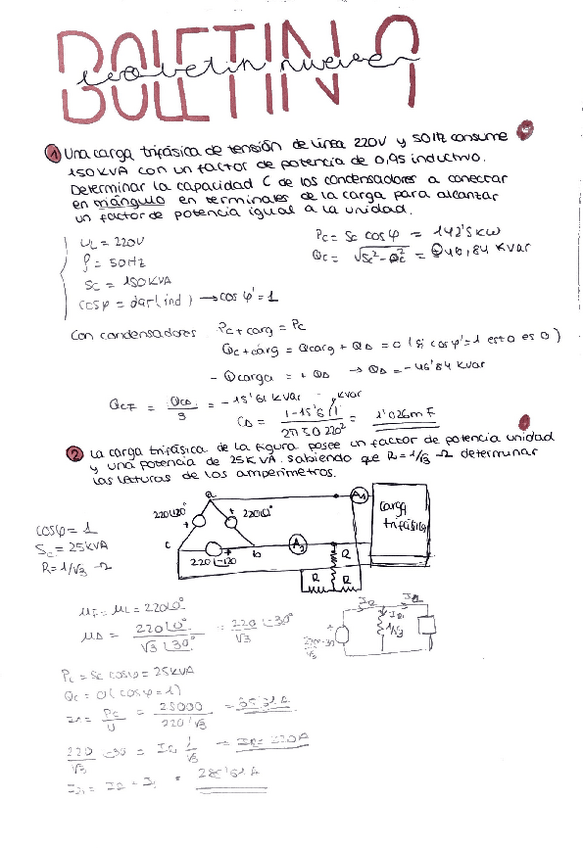 BOLETIN 9
boletin nueve
1 Una carga trifásica de tensión de línea 220V y 50Hz consume
150KVA con un factor de potencia de 0,95 inductivo.
Determinar la capacidad C de los condensadores a conectar
en triángulo en terminales de la carga para alcanzar
un factor de potencia igual a la unidad.
UL = 220V
f = 50Hz
Sc = 150KVA
cosφ = (ind) → cos φ' = 1
Pc = Sc cosφ = 142'5KW
Qc = √Sc²-Qc² = 46,84 KVar
Con condensadores Pc+carg = Pc
Qc+carg = Qcarg + QΔ = 0 (si cosφ'=1 esto es 0)
- Qcarga = + QΔ → QΔ = -46'84 KVar
QCF = QCΔ/3 = -15'61 KVar
KVar
CΔ = |-15'61|/2π50 220² = 1'026mF
2 La carga trifásica de la figura posee un factor de potencia unidad
y una potencia de 25KVA. Sabiendo que R=1/√3 Ω determinar
las lecturas de los amperímetros.
cosφ = 1
Sc = 25KVA
R = 1/√3 Ω
a
220∟120°
220∟0°
c
b
220∟-120
A1
A2
R
R
R
carga
trifásica
UF = UL = 220∟0°
220∟0°/√3∟30° = 220/√3 ∟-30°
1/√3
Pc = Sc cosφ = 25KVA
Qc = 0 (cosφ=1)
= Pc/U = 25000/220√3
220/√3 ∟-30 = 1/√3 → = 220A